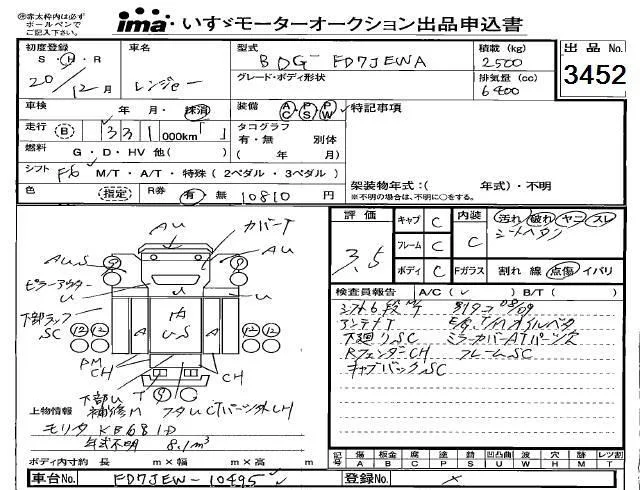 ㊟赤太枠内は必ず
ボールペンで
ご記入下さい。
ima いすゞモーターオークション出品申込書
初度登録 車名 型式 積載 (kg) 出品No.
S・H・R レンジャー BDG- FD7JEWA 2500 3452
20/12月 グレード・ボディ形状 排気量 (cc)
6400
車検 年 月・抹消 装備 AC PS PW 特記事項
走行 B 331000km タコグラフ
有・無 別体
燃料 G・D・HV 他( ) ( 年 月)
シフト F6 M/T・A/T・特殊 (2ペダル・3ペダル)
架装物年式:( 年式)・不明
※不明の場合は、不明に○をする。
色 指定 R券 有・無 10810円
評価 3.5
キャブ C 内装 C 汚れ 破れ ヤニ スレ
フレーム C
ボディ C Fガラス 割れ 線 点傷 イバリ
AU カバーT
AUS AU
ピラーアウターU
U
下部ラップSC
A A US A
12 12 12 12
PM CH
CH
下部U T
補修M フタU CTパーツ外CH
検査員報告 A/C( ) B/T( )
シフト6段M/T
アンテナT E/g T/Mオイルベタ
下廻りSC ミラーカバーATパーツ欠
RフェンダーCH フレームSC
キャブバックSC
上物情報
モリタ KF681D
年式不明 8.1m³
ボディ内寸約 長 m×幅 m×高 m
記号 傷 板金 腐 塗 錆 凹凸曲 波 穴 跡 レツ割
A B C P S U W H M T
車台No. FD7JEW-10495 登録No. ×